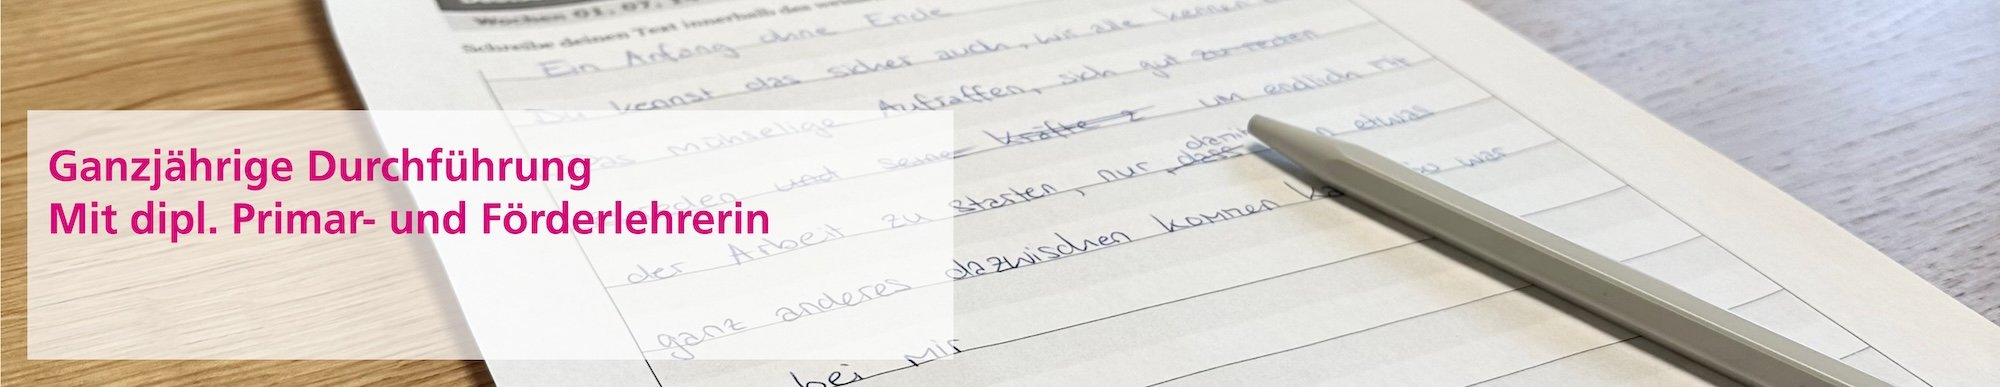 Wochen 01, 07, 1
Schreibe deinen Text innerhalb des
Ein Anfang ohne Ende
Du kennst das sicher auch, wir alle kennen
das mühselige Aufraffen, sich gut zu reden
reden und seine kräfte z um endlich mit
der Arbeit zu starten, nur, dass damit etwas
ganz anderes dazwischen kommen so war
bei mir
Ganzjährige Durchführung
Mit dipl. Primar- und Förderlehrerin